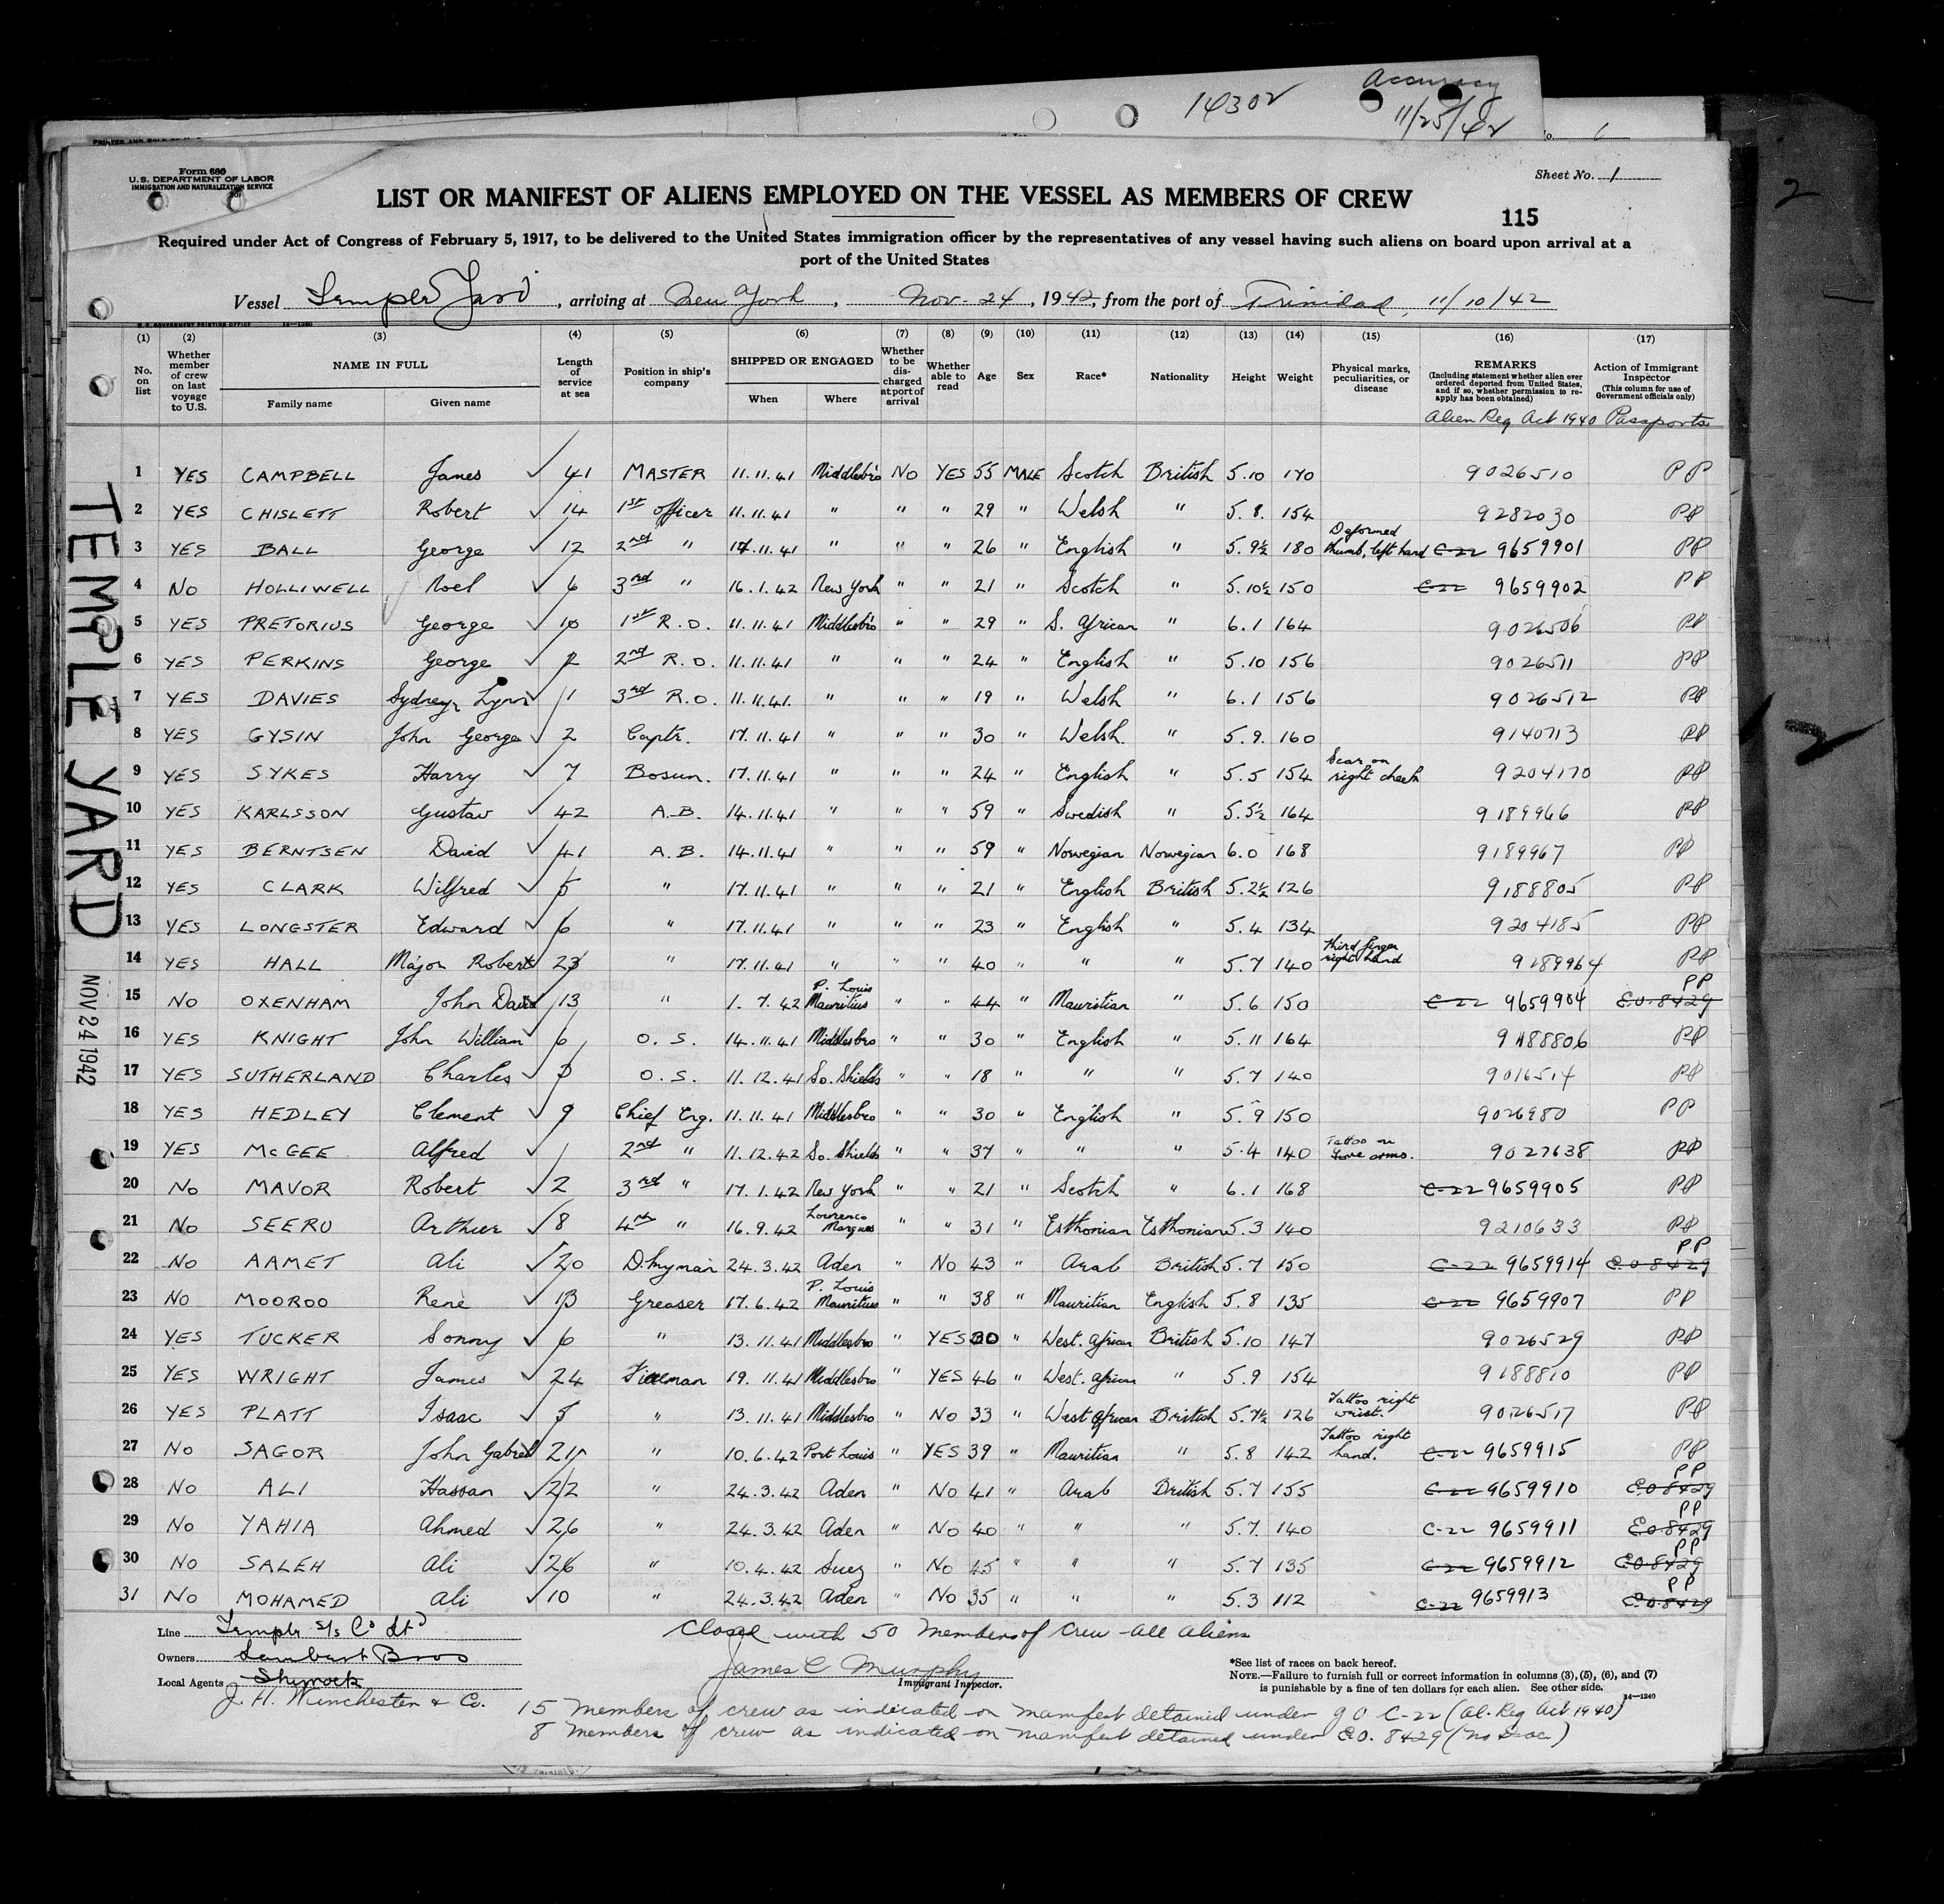 14302
Accuracy
11/25/42
Form 680
U.S. DEPARTMENT OF LABOR
IMMIGRATION AND NATURALIZATION SERVICE
Sheet No. 1
LIST OR MANIFEST OF ALIENS EMPLOYED ON THE VESSEL AS MEMBERS OF CREW
115
Required under Act of Congress of February 5, 1917, to be delivered to the United States immigration officer by the representatives of any vessel having such aliens on board upon arrival at a
port of the United States
Vessel Temple Yard, arriving at New York, Nov. 24, 1942, from the port of Trinidad, 11/10/42
(1) (2) (3) (4) (5) (6) (7) (8) (9) (10) (11) (12) (13) (14) (15) (16) (17)
No. on list
Whether member of crew on last voyage to U.S.
NAME IN FULL
Family name Given name
Length of service at sea
Position in ship's company
SHIPPED OR ENGAGED
When Where
Whether to be discharged at port of arrival
Whether able to read
Age Sex Race* Nationality Height Weight
Physical marks, peculiarities, or disease
REMARKS
(Including statement whether alien ever ordered deported from United States, and if so, whether permission to reapply has been obtained)
Action of Immigrant Inspector
(This column for use of Government officials only)
Alien Reg Act 1940 Passports
1 YES CAMPBELL James 41 MASTER 11.11.41 Middlesbro No YES 55 MALE Scotch British 5.10 170 9026510 PP
2 YES CHISLETT Robert 14 1st officer 11.11.41 " " " 29 " Welsh " 5.8. 154 9282030 PP
3 YES BALL George 12 2nd " 14.11.41 " " " 26 " English " 5.9½ 180 Deformed thumb, left hand C-22 9659901 PP
4 No HOLLIWELL Noel 6 3rd " 16.1.42 New York " " 21 " Scotch " 5.10½ 150 C-22 9659902 PP
5 YES PRETORIUS George 10 1st R.O. 11.11.41 Middlesbro " " 29 " S. African " 6.1 164 9026506 PP
6 YES PERKINS George 2 2nd R.O. 11.11.41 " " " 24 " English " 5.10 156 9026511 PP
7 YES DAVIES Sydney Lynn 1 3rd R.O. 11.11.41. " " " 19 " Welsh " 6.1 156 9026512 PP
8 YES GYSIN John George 2 Captr. 17.11.41 " " " 30 " Welsh. " 5.9. 160 9140713 PP
9 YES SYKES Harry 7 Bosun. 17.11.41 " " " 24 " English " 5.5 154 Scar on right cheek 9204170 PP
10 YES KARLSSON Gustav 42 A.B. 14.11.41 " " " 59 " Swedish " 5.5½ 164 9189966 PP
11 YES BERNTSEN David 41 A.B. 14.11.41 " " " 59 " Norwegian Norwegian 6.0 168 9189967 PP
12 YES CLARK Wilfred 5 " 17.11.41 " " " 21 " English British 5.2½ 126 9188805 PP
13 YES LONGSTER Edward 6 " 17.11.41 " " " 23 " English " 5.4 134 9204185 PP
14 YES HALL Major Robert 23 " 17.11.41 " " " 40 " " " 5.7 140 third finger right hand 9189964 PP
15 No OXENHAM John David 13 " 1.7.42 P. Louis Mauritius " " 44 " Mauritian " 5.6 150 C-22 9659904 PP E.O. 8429
16 YES KNIGHT John William 6 O.S. 14.11.41 Middlesbro " " 30 " English " 5.11 164 9188806 PP
17 YES SUTHERLAND Charles O.S. 11.12.41 So. Shields " " 18 " " " 5.7 140 9016514 PP
18 YES HEDLEY Clement 9 Chief Eng. 11.11.41 Middlesbro " " 30 " English " 5.9 150 9026980 PP
19 YES McGEE Alfred 1 2nd " 11.12.42 So. Shields " " 37 " " " 5.4 140 Tattoo on fore arms. 9027638 PP
20 No MAVOR Robert 2 3rd " 17.1.42 New York " " 21 " Scotch " 6.1 168 C-22 9659905 PP
21 No SEERU Arthur 8 4th " 16.9.42 Lourenco Marques " " 31 " Esthonian Esthonian 5.3 140 9210633 PP
22 No AAMET Ali 20 D.kyman 24.3.42 Aden " No 43 " Arab British 5.7 150 C-22 9659914 PP E.O 8429
23 No MOOROO Rene 13 Greaser 17.6.42 P. Louis Mauritius " " 38 " Mauritian English 5.8 135 C-22 9659907 PP
24 YES TUCKER Sonny 6 " 13.11.41 Middlesbro " YES 30 " West. African British 5.10 147 9026529 PP
25 YES WRIGHT James 24 Fireman 19.11.41 Middlesbro " YES 46 " West. African " 5.9 154 9188810 PP
26 YES PLATT Isaac 5 " 13.11.41 Middlesbro " No 33 " West African British 5.7½ 126 Tattoo right wrist. 9026517 PP
27 No SAGOR John Gabriel 21 " 10.6.42 Port Louis " YES 39 " Mauritian " 5.8 142 Tattoo right hand. C-22 9659915 PP
28 No ALI Hassan 22 " 24.3.42 Aden " No 41 " Arab British 5.7 155 C-22 9659910 PP E.O 8429
29 No YAHIA Ahmed 26 " 24.3.42 Aden " No 40 " " " 5.7. 140 C-22 9659911 PP E.O 8429
30 No SALEH Ali 26 " 10.4.42 Suez " No 45 " " " 5.7 135 C-22 9659912 PP E.O 8429
31 No MOHAMED Ali 10 " 24.3.42 Aden " No 35 " " " 5.3 112 C-22 9659913 PP E.O. 8429
TEMPLE YARD
NOV 24 1942
Line Temple S/S Co Ltd
Owners Lambert Bros
Local Agents
J. H. Winchester & Co.
Closed with 50 Members of Crew - all aliens
James C Murphy
Immigrant Inspector.
*See list of races on back hereof.
NOTE.—Failure to furnish full or correct information in columns (3), (5), (6), and (7)
is punishable by a fine of ten dollars for each alien. See other side.
14—1240
15 members of crew as indicated on manifest detained under GO C-22 (Al. Reg Act 1940)
8 members of crew as indicated on manifest detained under E.O. 8429 (no Docs)
2
2